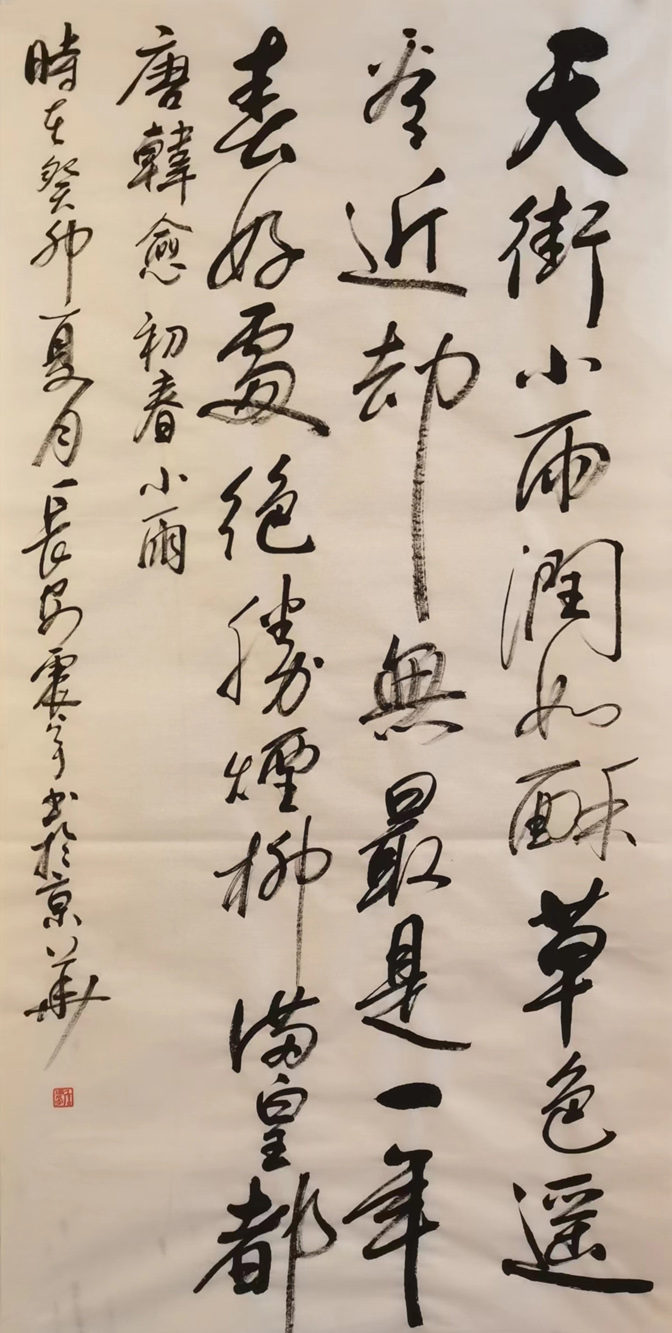 天街小雨潤如酥草色遥
看近却無最是一年
春好處絕勝煙柳滿皇都
唐韓愈初春小雨
時在癸卯夏月長安震宇书於京華